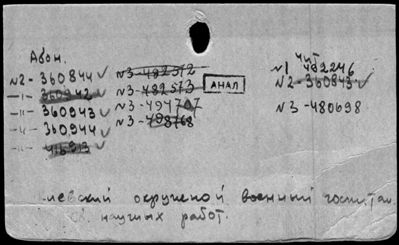 Абон.
N2-360844 ✓
-"- 360942
-"- 360943 ✓
-"- 360944 ✓
N3-482572
N3-482573
АНАЛ
N3-494707
N3-498768
Чит
N1 482246
N2-360843 ✓
N3-480698
иевский окружной военный госпитал
научных работ.